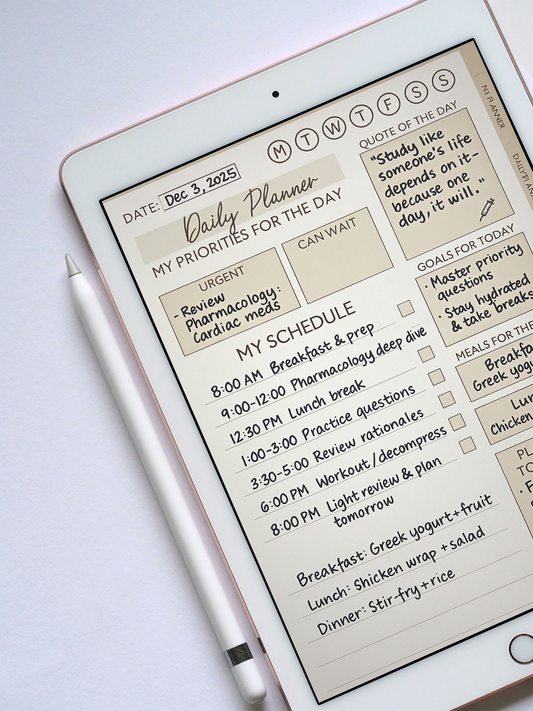 M T W T F S S
DATE: Dec 3, 2025
Daily Planner
MY PRIORITIES FOR THE DAY
URGENT
- Review
Pharmacology:
Cardiac meds
CAN WAIT
QUOTE OF THE DAY
"Study like
someone's life
depends on it-
because one
day, it will."
GOALS FOR TODAY
· Master priority
questions
· Stay hydrated
& take breaks
MY SCHEDULE
8:00 AM Breakfast & prep
9:00-12:00 Pharmacology deep dive
12:30 PM Lunch break
1:00-3:00 Practice questions
3:30-5:00 Review rationales
6:00 PM Workout/decompress
8:00 PM Light review & plan
tomorrow
MEALS FOR THE
Breakfa
Greek yog
Lun
Chicken
PL
TO
Breakfast: Greek yogurt+fruit
Lunch: Shicken wrap + salad
Dinner: Stir-fry+rice